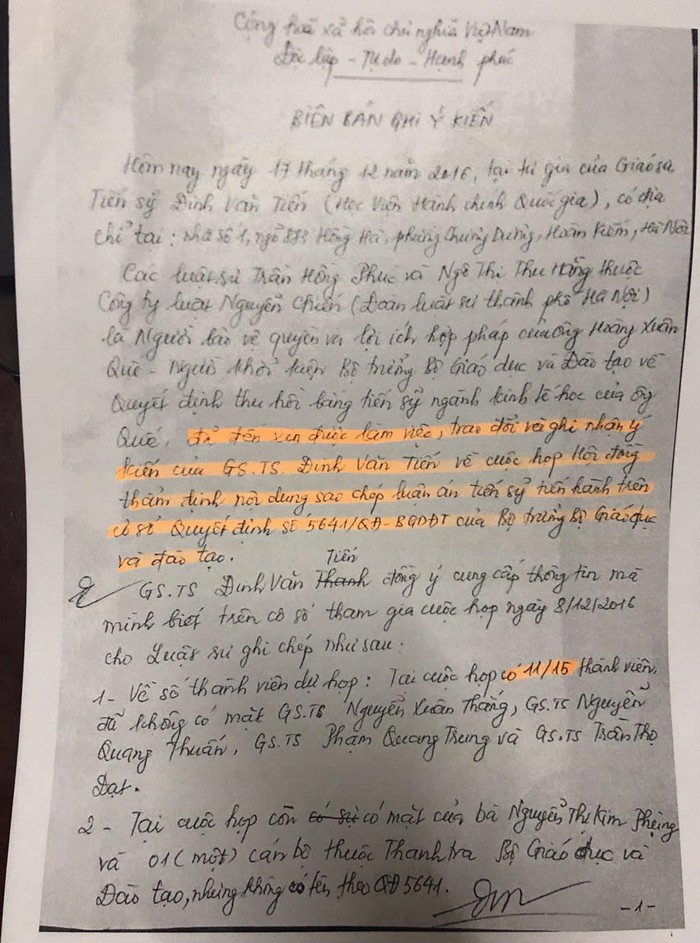 Cộng hoà xã hội chủ nghĩa Việt Nam
Độc lập - Tự do - Hạnh phúc
BIÊN BẢN GHI Ý KIẾN
Hôm nay ngày 17 tháng 12 năm 2016, tại tư gia của Giáo sư,
Tiến sỹ Đinh Văn Tiến (Học Viện Hành chính Quốc gia), có địa
chỉ tại: nhà số 1, ngõ 883 Hồng Hà, phường Chương Dương, Hoàn Kiếm, Hà Nội
Các luật sư Trần Hồng Phúc và Ngô Thị Thu Hằng thuộc
Công ty luật Nguyễn Chiến (Đoàn luật sư thành phố Hà Nội)
là Người bảo vệ quyền và lợi ích hợp pháp của ông Hoàng Xuân
Quế - Người khởi kiện Bộ trưởng Bộ Giáo dục và Đào tạo về
Quyết định thu hồi bằng tiến sỹ ngành kinh tế học của ông
Quế, đã đến xin được làm việc, trao đổi và ghi nhận ý
kiến của GS.TS. Đinh Văn Tiến về cuộc họp Hội đồng
thẩm định nội dung sao chép luận án tiến sỹ tiến hành trên
cơ sở Quyết định số 5641/QĐ-BGDĐT của Bộ trưởng Bộ Giáo dục
và đào tạo.
Tiến
GS.TS Đinh Văn Thanh đồng ý cung cấp thông tin mà
mình biết trên cơ sở tham gia cuộc họp ngày 8/12/2016
cho Luật sư ghi chép như sau:
1- Về số thành viên dự họp: Tại cuộc họp có 11/15 thành viên,
đã không có mặt GS.TS Nguyễn Xuân Thắng, GS.TS Nguyễn
Quang Thuấn, GS.TS Phạm Quang Trung và GS.TS Trần Thọ
Đạt.
2- Tại cuộc họp còn có sự có mặt của bà Nguyễn Thị Kim Phụng
và 01 (một) cán bộ thuộc Thanh tra Bộ Giáo dục và
Đào tạo, nhưng không có tên theo QĐ 5641.
-1-